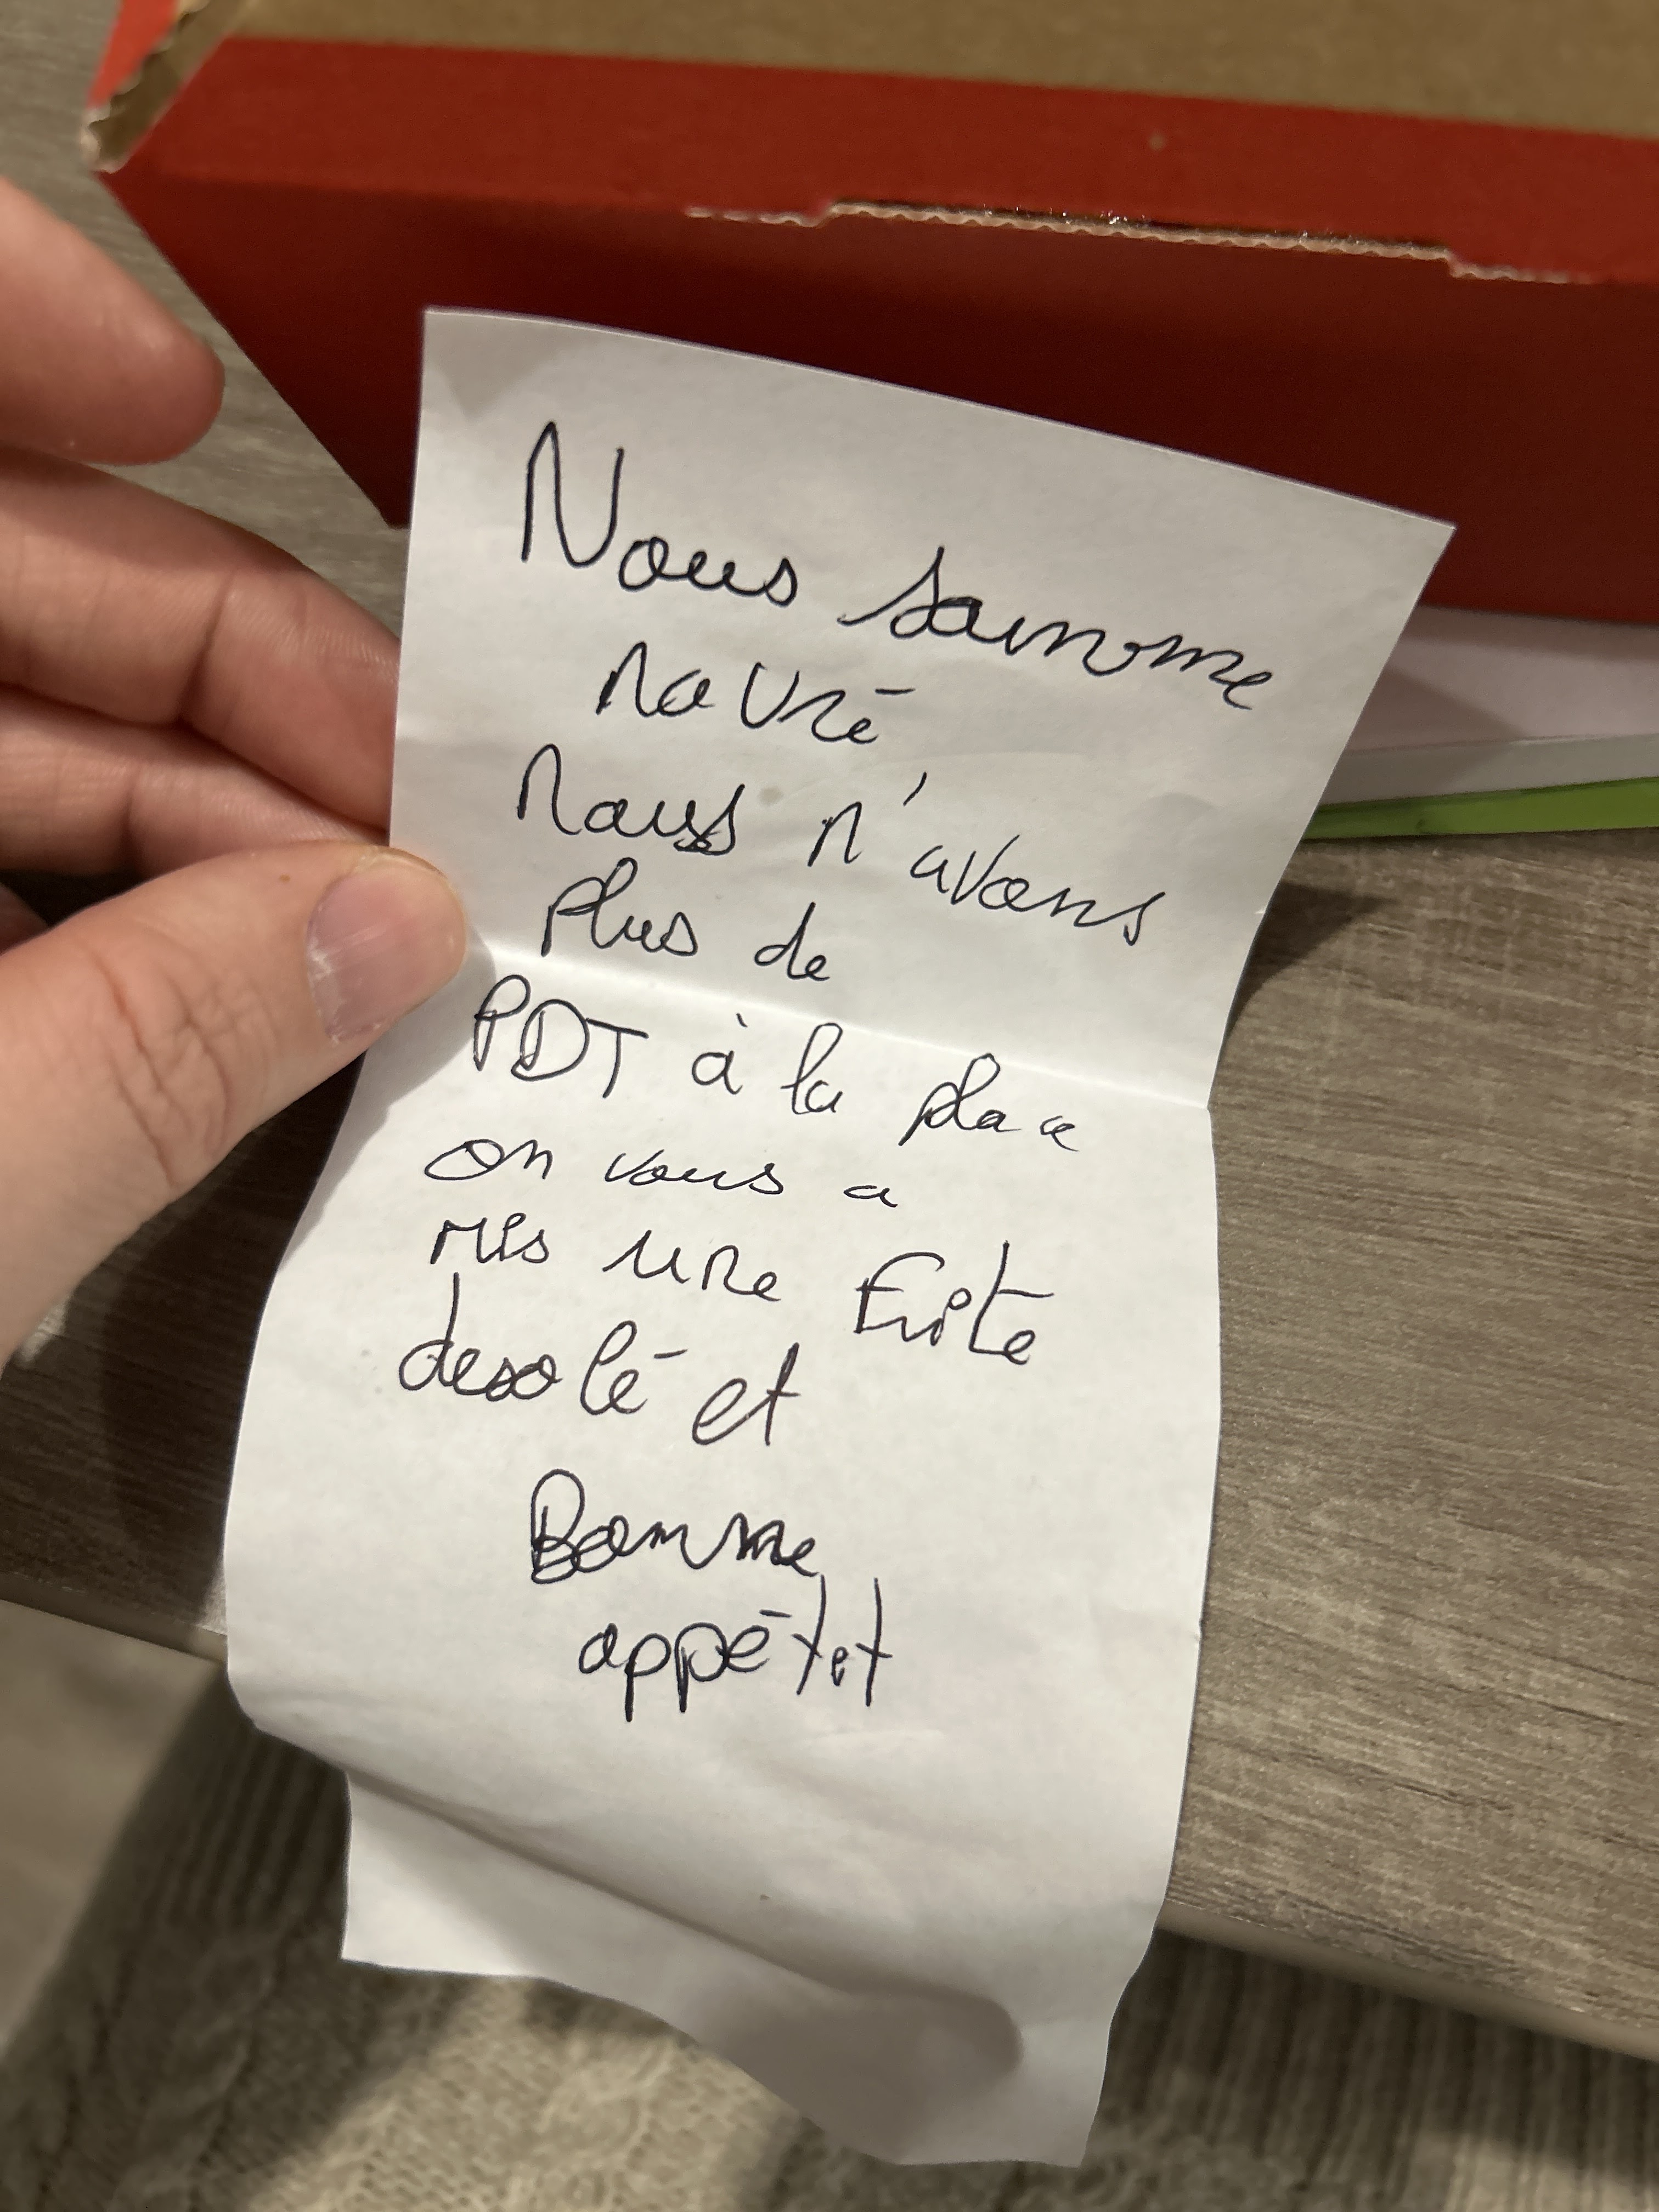 Nous somme
navré
nous n'avons
plus de
PDT à la place
on vous a
mis une Frite
desolé et
Bonne
appétit